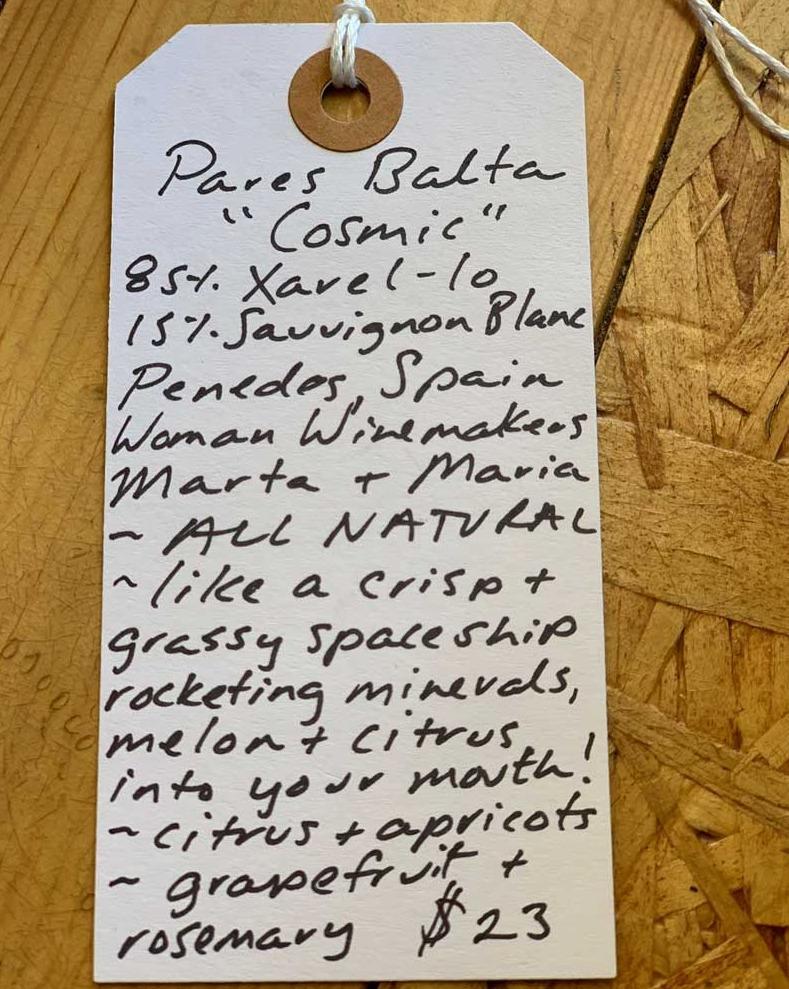 Pares Balta
"Cosmic"
85% Xarel-lo
15% Sauvignon Blanc
Penedes, Spain
Woman Winemakers
Marta + Maria
~ ALL NATURAL
~ like a crisp +
grassy spaceship
rocketing minerals,
melon + citrus
into your mouth!
~ citrus + apricots
~ grapefruit +
rosemary $23